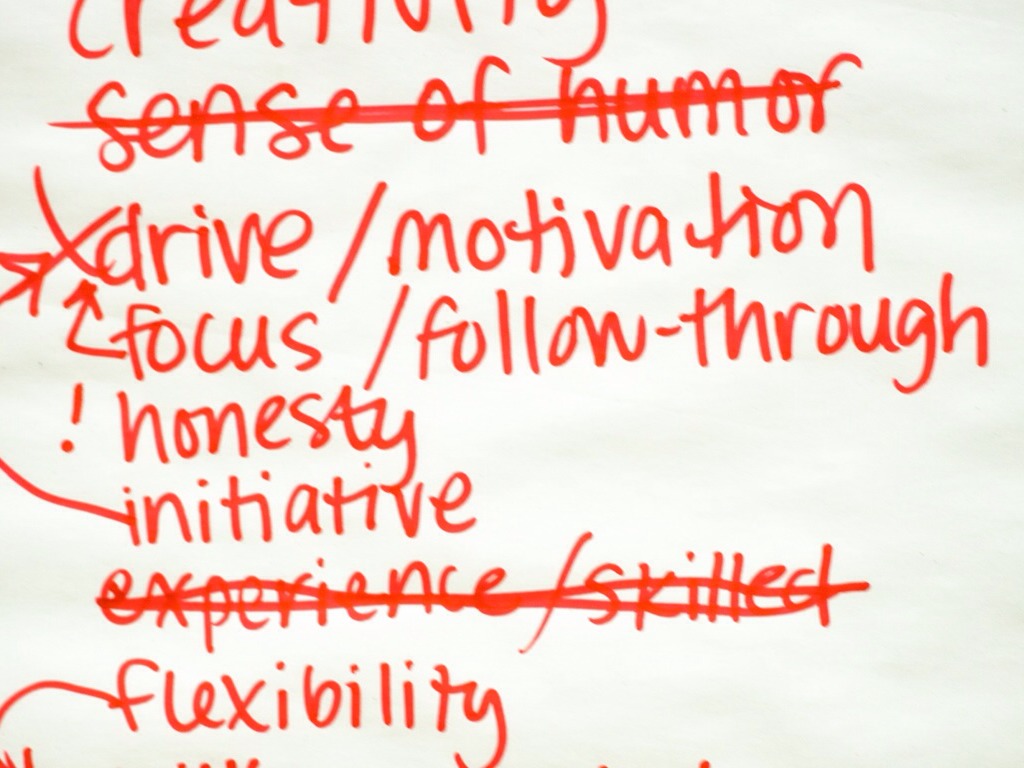 creativity
sense of humor
drive / motivation
focus / follow-through
! honesty
initiative
experience / skilled
flexibility